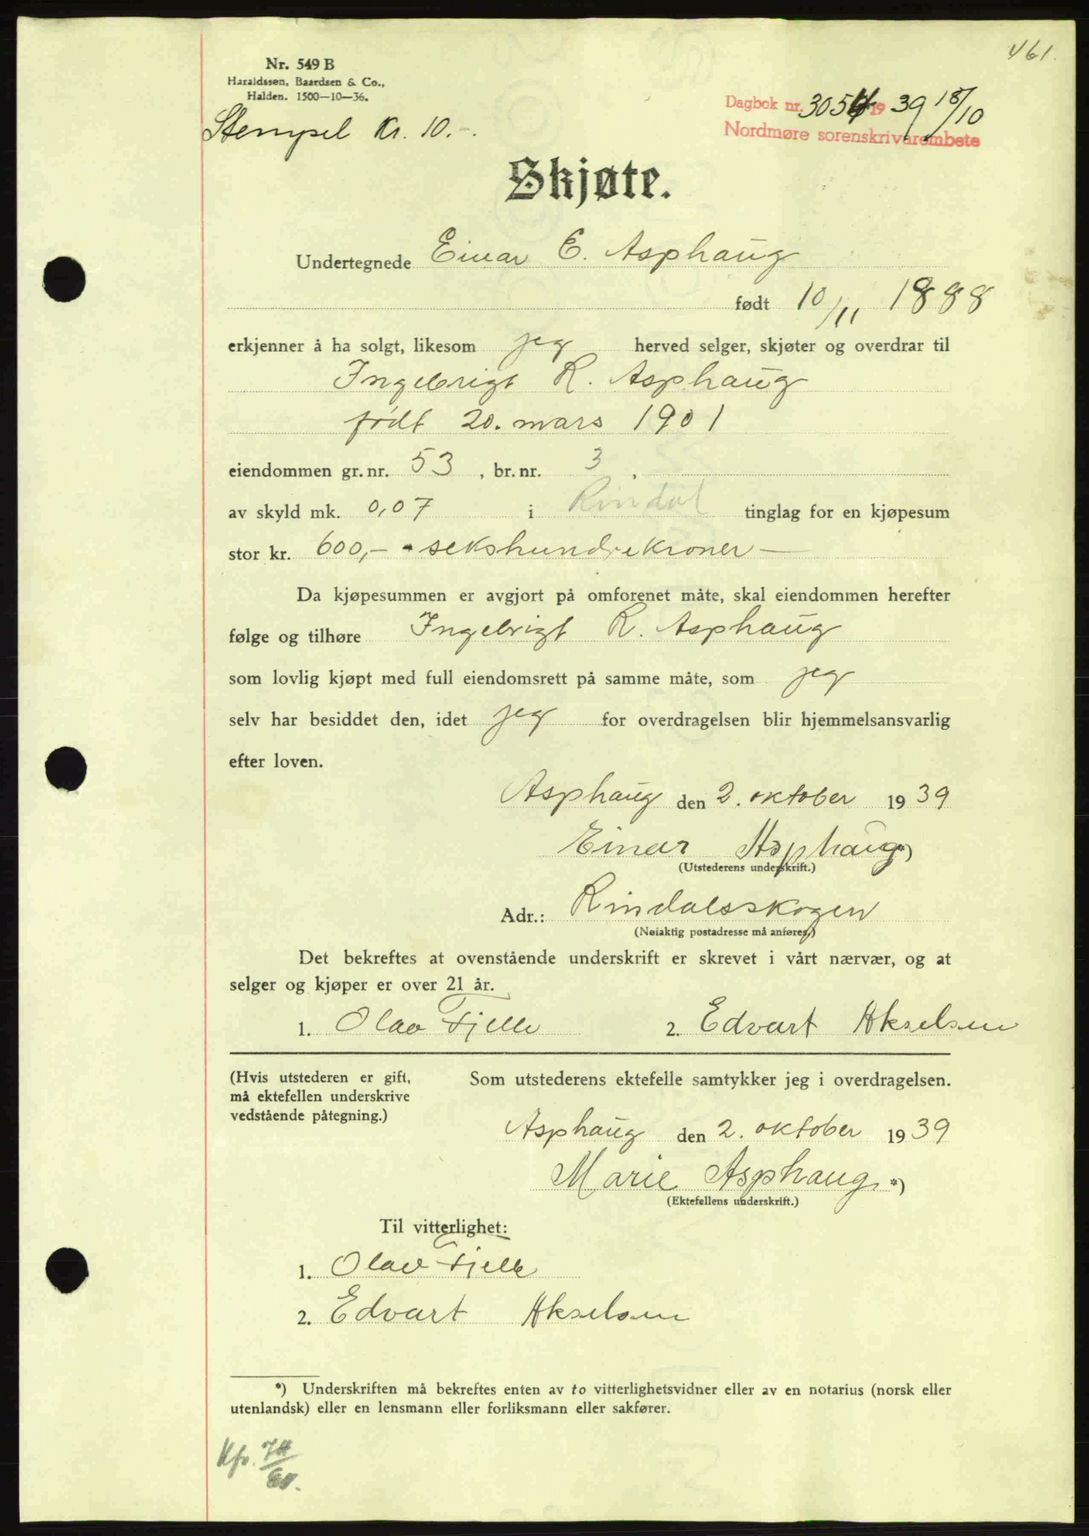 461.
Nr. 549 B
Haraldssen, Baardsen & Co.,
Halden. 1500—10—36.
Stempel Kr. 10.-.
Dagbok nr. 3054 19 39 18/10
Nordmøre sorenskrivarembete
Skjøte.
Undertegnede Einar E. Asphaug
født 10/11 1888
erkjenner å ha solgt, likesom jeg herved selger, skjøter og overdrar til
Ingebrigt R. Asphaug
født 20. mars 1901
eiendommen gr. nr. 53, br. nr. 3.
av skyld mk. 0,07 i Rindal tinglag for en kjøpesum
stor kr. 600,- - sekshundrekroner -
Da kjøpesummen er avgjort på omforenet måte, skal eiendommen herefter
følge og tilhøre Ingebrigt R. Asphaug
som lovlig kjøpt med full eiendomsrett på samme måte, som jeg
selv har besiddet den, idet jeg for overdragelsen blir hjemmelsansvarlig
efter loven.
Asphaug den 2. oktober 1939
Einar Asphaug *)
(Utstederens underskrift.)
Adr.: Rindalsskogen
(Nøiaktig postadresse må anføres.)
Det bekreftes at ovenstående underskrift er skrevet i vårt nærvær, og at
selger og kjøper er over 21 år.
1. Olav Fjelle 2. Edvart Akselsen
(Hvis utstederen er gift,
må ektefellen underskrive
vedstående påtegning.)
Som utstederens ektefelle samtykker jeg i overdragelsen.
Asphaug den 2. oktober 1939
Marie Asphaug. *)
(Ektefellens underskrift.)
Til vitterlighet:
1. Olav Fjelle
2. Edvart Akselsen
*) Underskriften må bekreftes enten av to vitterlighetsvidner eller av en notarius (norsk eller
utenlandsk) eller en lensmann eller forliksmann eller sakfører.
Kfr.